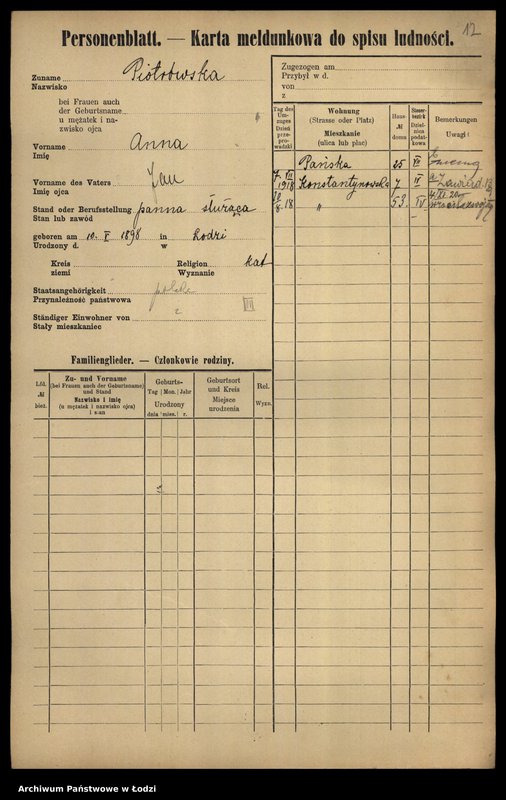 12
Personenblatt. — Karta meldunkowa do spisu ludności.
Zuname
Nazwisko
Piotrowska
bei Frauen auch
der Geburtsname
u mężatek i na-
zwisko ojca
Vorname
Imię
Anna
Vorname des Vaters
Imię ojca
Jan
Stand oder Berufsstellung
Stan lub zawód
panna służąca
geboren am 10. V 1898 in Łodzi
Urodzony d. w
Kreis
ziemi
Religion
Wyznanie
kat
Staatsangehörigkeit
Przynależność państwowa
polska
III
Ständiger Einwohner von
Stały mieszkaniec
z
Zugezogen am
Przybył w d.
von
z
Tag des Um-zuges
Dzień prze-prowadzki
Wohnung
(Strasse oder Platz)
Mieszkanie
(ulica lub plac)
Haus-
№
domu
Steuer-bezirk
Dzielnica podatkowa
Bemerkungen
Uwagi
Pańska 25 VII
7. VII 1918 Konstantynowska 7 IV
8. 18 „ 53. IV
Familienglieder. — Członkowie rodziny.
Lfd.
№
bież.
Zu- und Vorname
(bei Frauen auch der Geburtsname)
und Stand
Nazwisko i imię
(u mężatek i nazwisko ojca)
i stan
Geburts-
Tag Mon. Jahr
Urodzony
dnia mies. r.
Geburtsort
und Kreis
Miejsce
urodzenia
Rel.
Wyzn.
Archiwum Państwowe w Łodzi